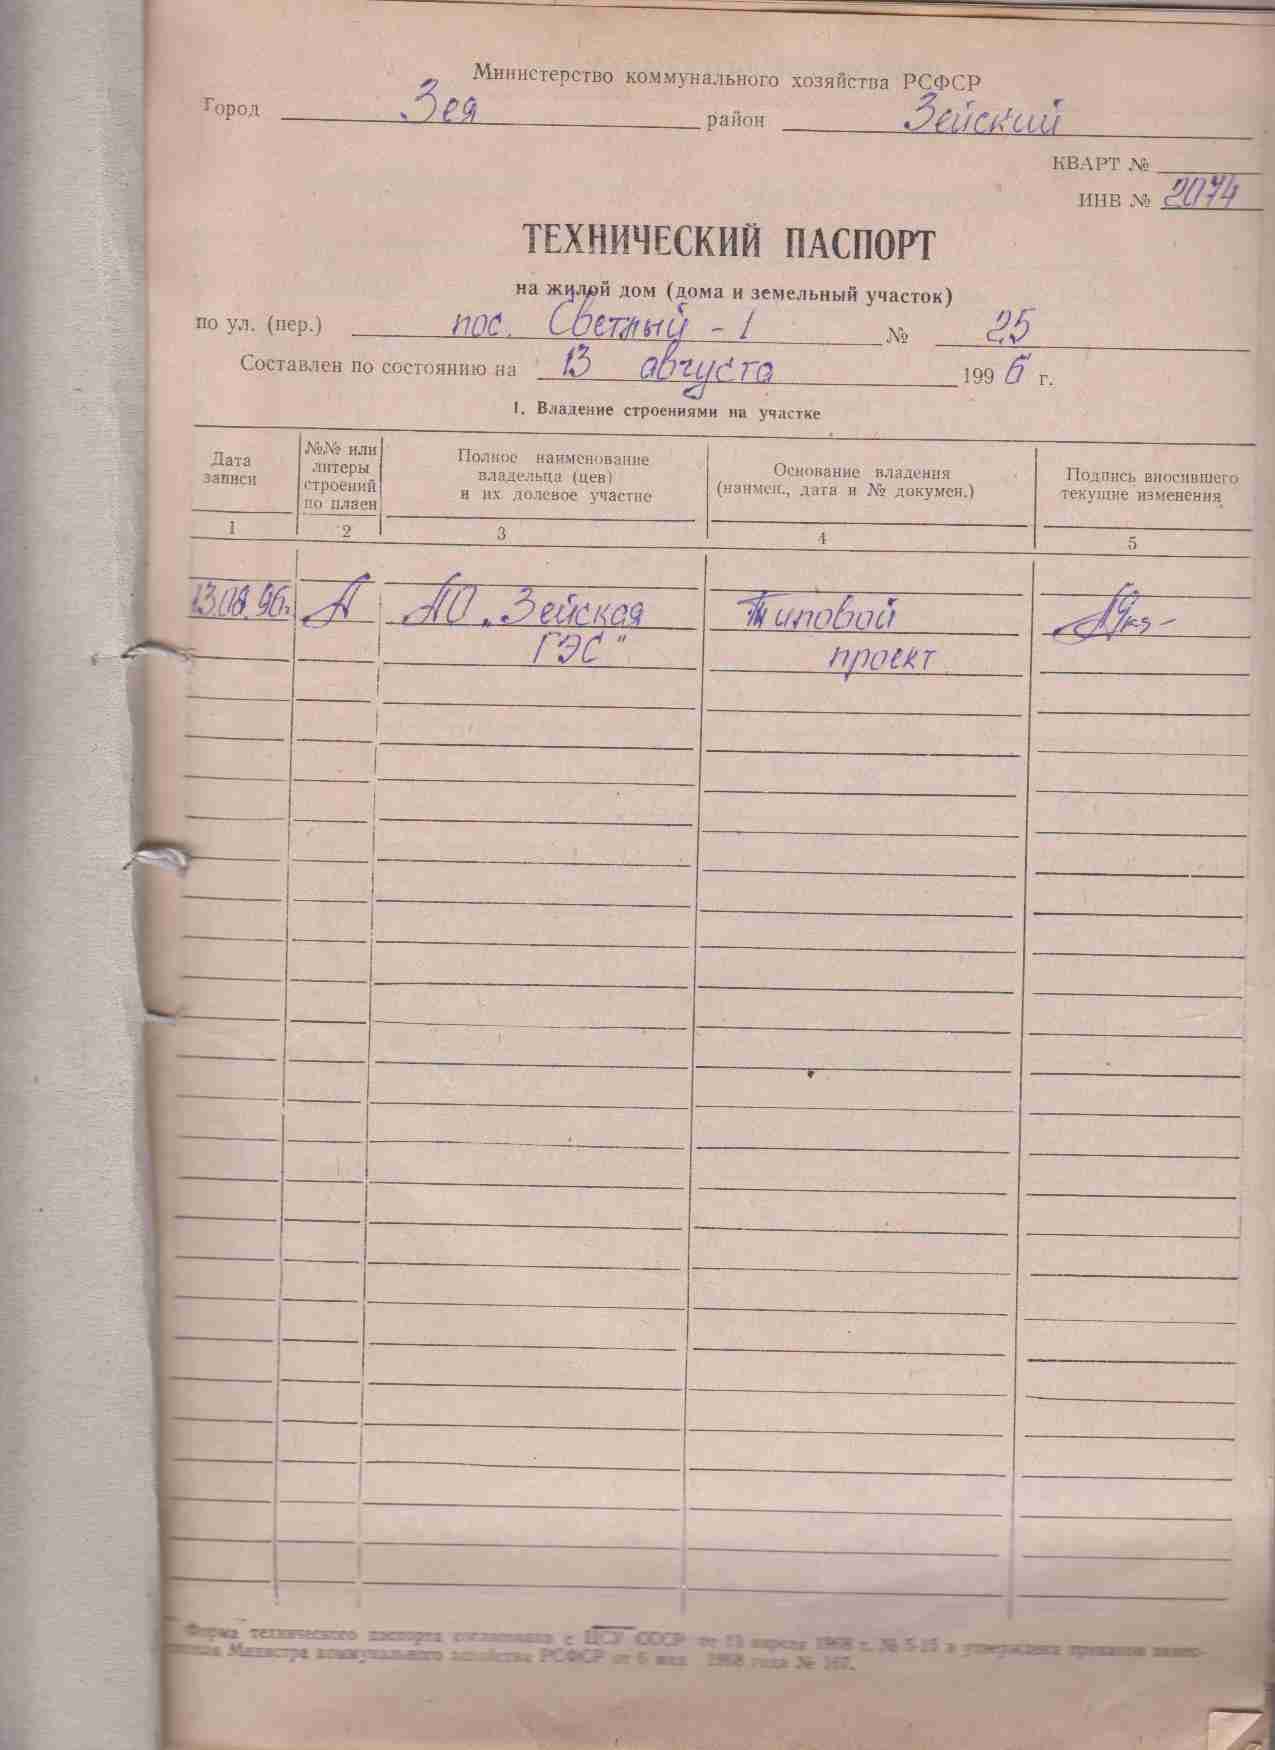 Министерство коммунального хозяйства РСФСР
Город Зея район Зейский
КВАРТ №
ИНВ № 2074
ТЕХНИЧЕСКИЙ ПАСПОРТ
на жилой дом (дома и земельный участок)
по ул. (пер.) пос. Светлый - 1 № 25
Составлен по состоянию на 13 августа 1996 г.
1. Владение строениями на участке
Дата записи
№№ или литеры строений по плаен
Полное наименование владельца (цев) и их долевое участие
Основание владения (наимен., дата и № докумен.)
Подпись вносившего текущие изменения
1 2 3 4 5
13.08.96г. А ПО „Зейская Типовой
ГЭС" проект
Форма технического паспорта согласована с ЦСУ СССР от 11 апреля 1968 г. № 5-15 и утверждена приказом
Министра коммунального хозяйства РСФСР от 6 мая 1968 года № 167.